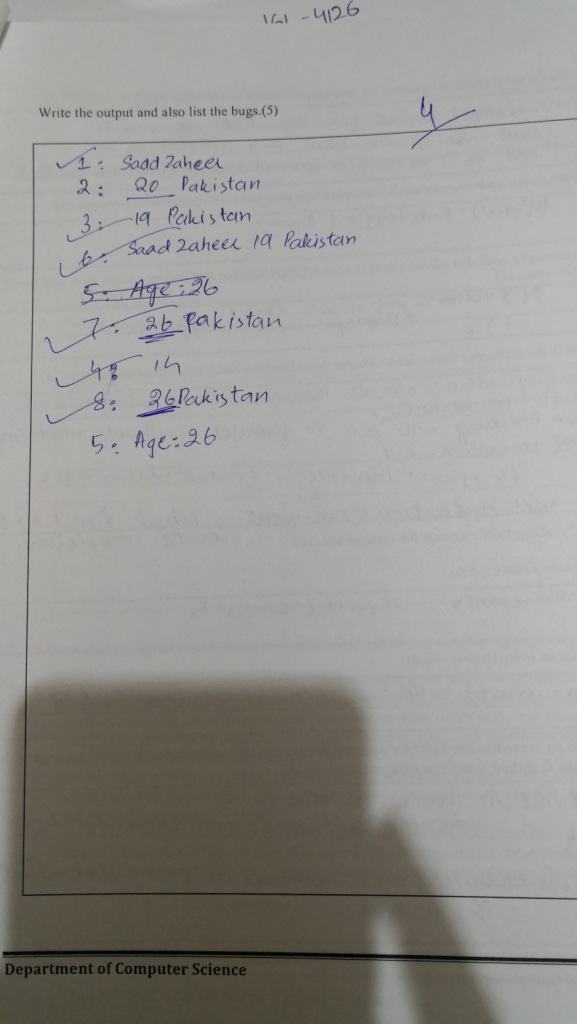 161-4126
Write the output and also list the bugs.(5)
4
1: Saad Zaheer
2: 20 Pakistan
3: 19 Pakistan
6: Saad Zaheer 19 Pakistan
5: Age:26
7: 26 Pakistan
4: 14
8: 26 Pakistan
5: Age:26
Department of Computer Science